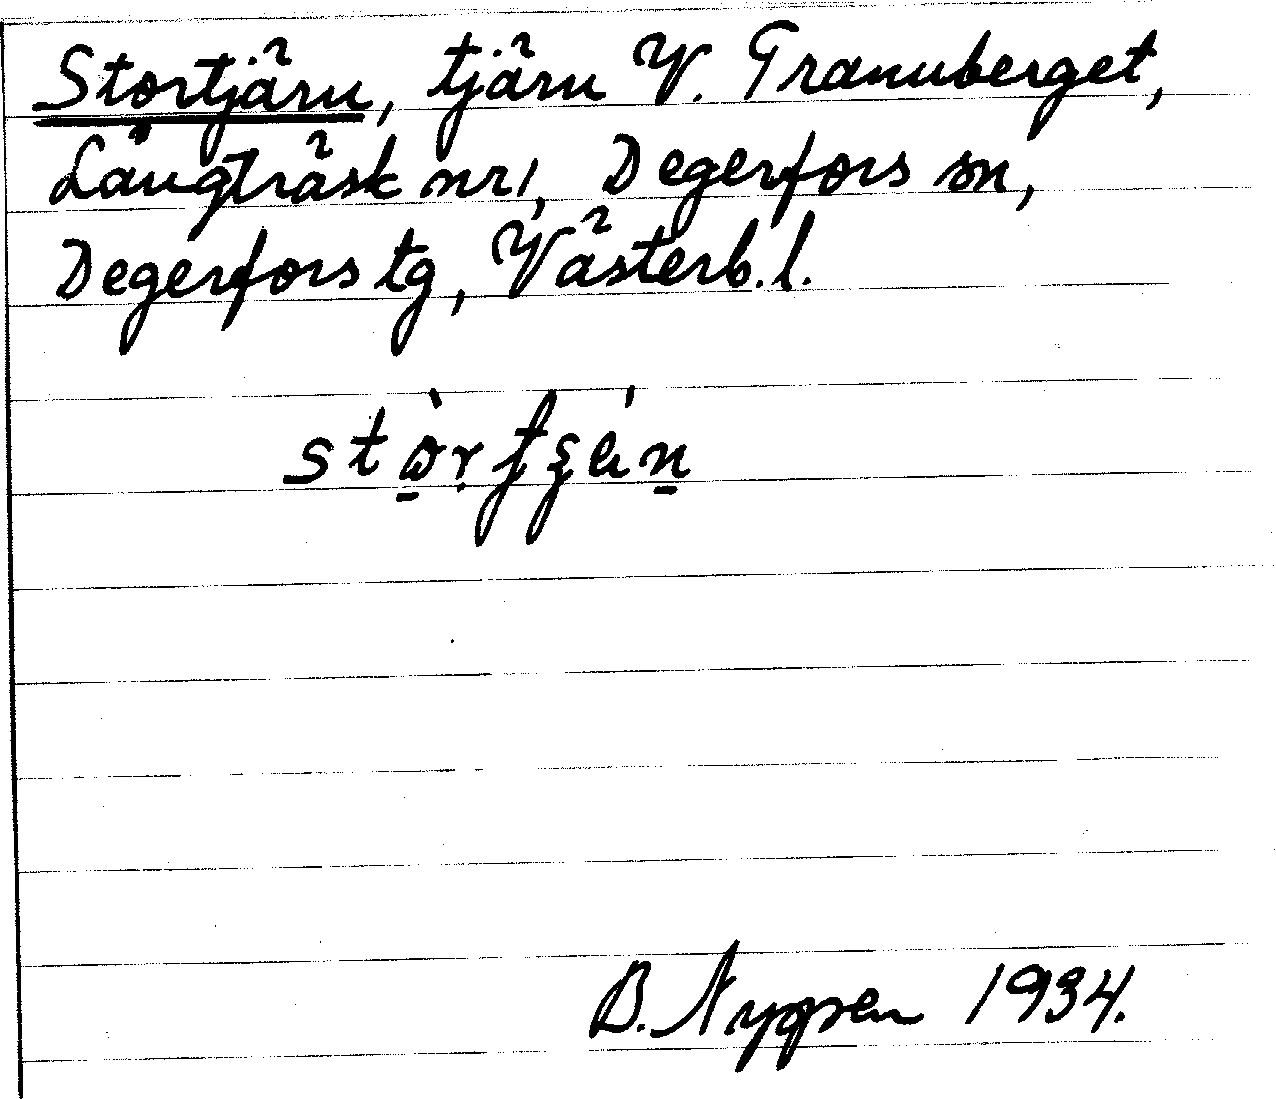 Stortjärn, tjärn V. Tranuberget,
Långträsk nr 1, Degerfors sn,
Degerfors tg, Västerb. l.
B. Nygren 1934.